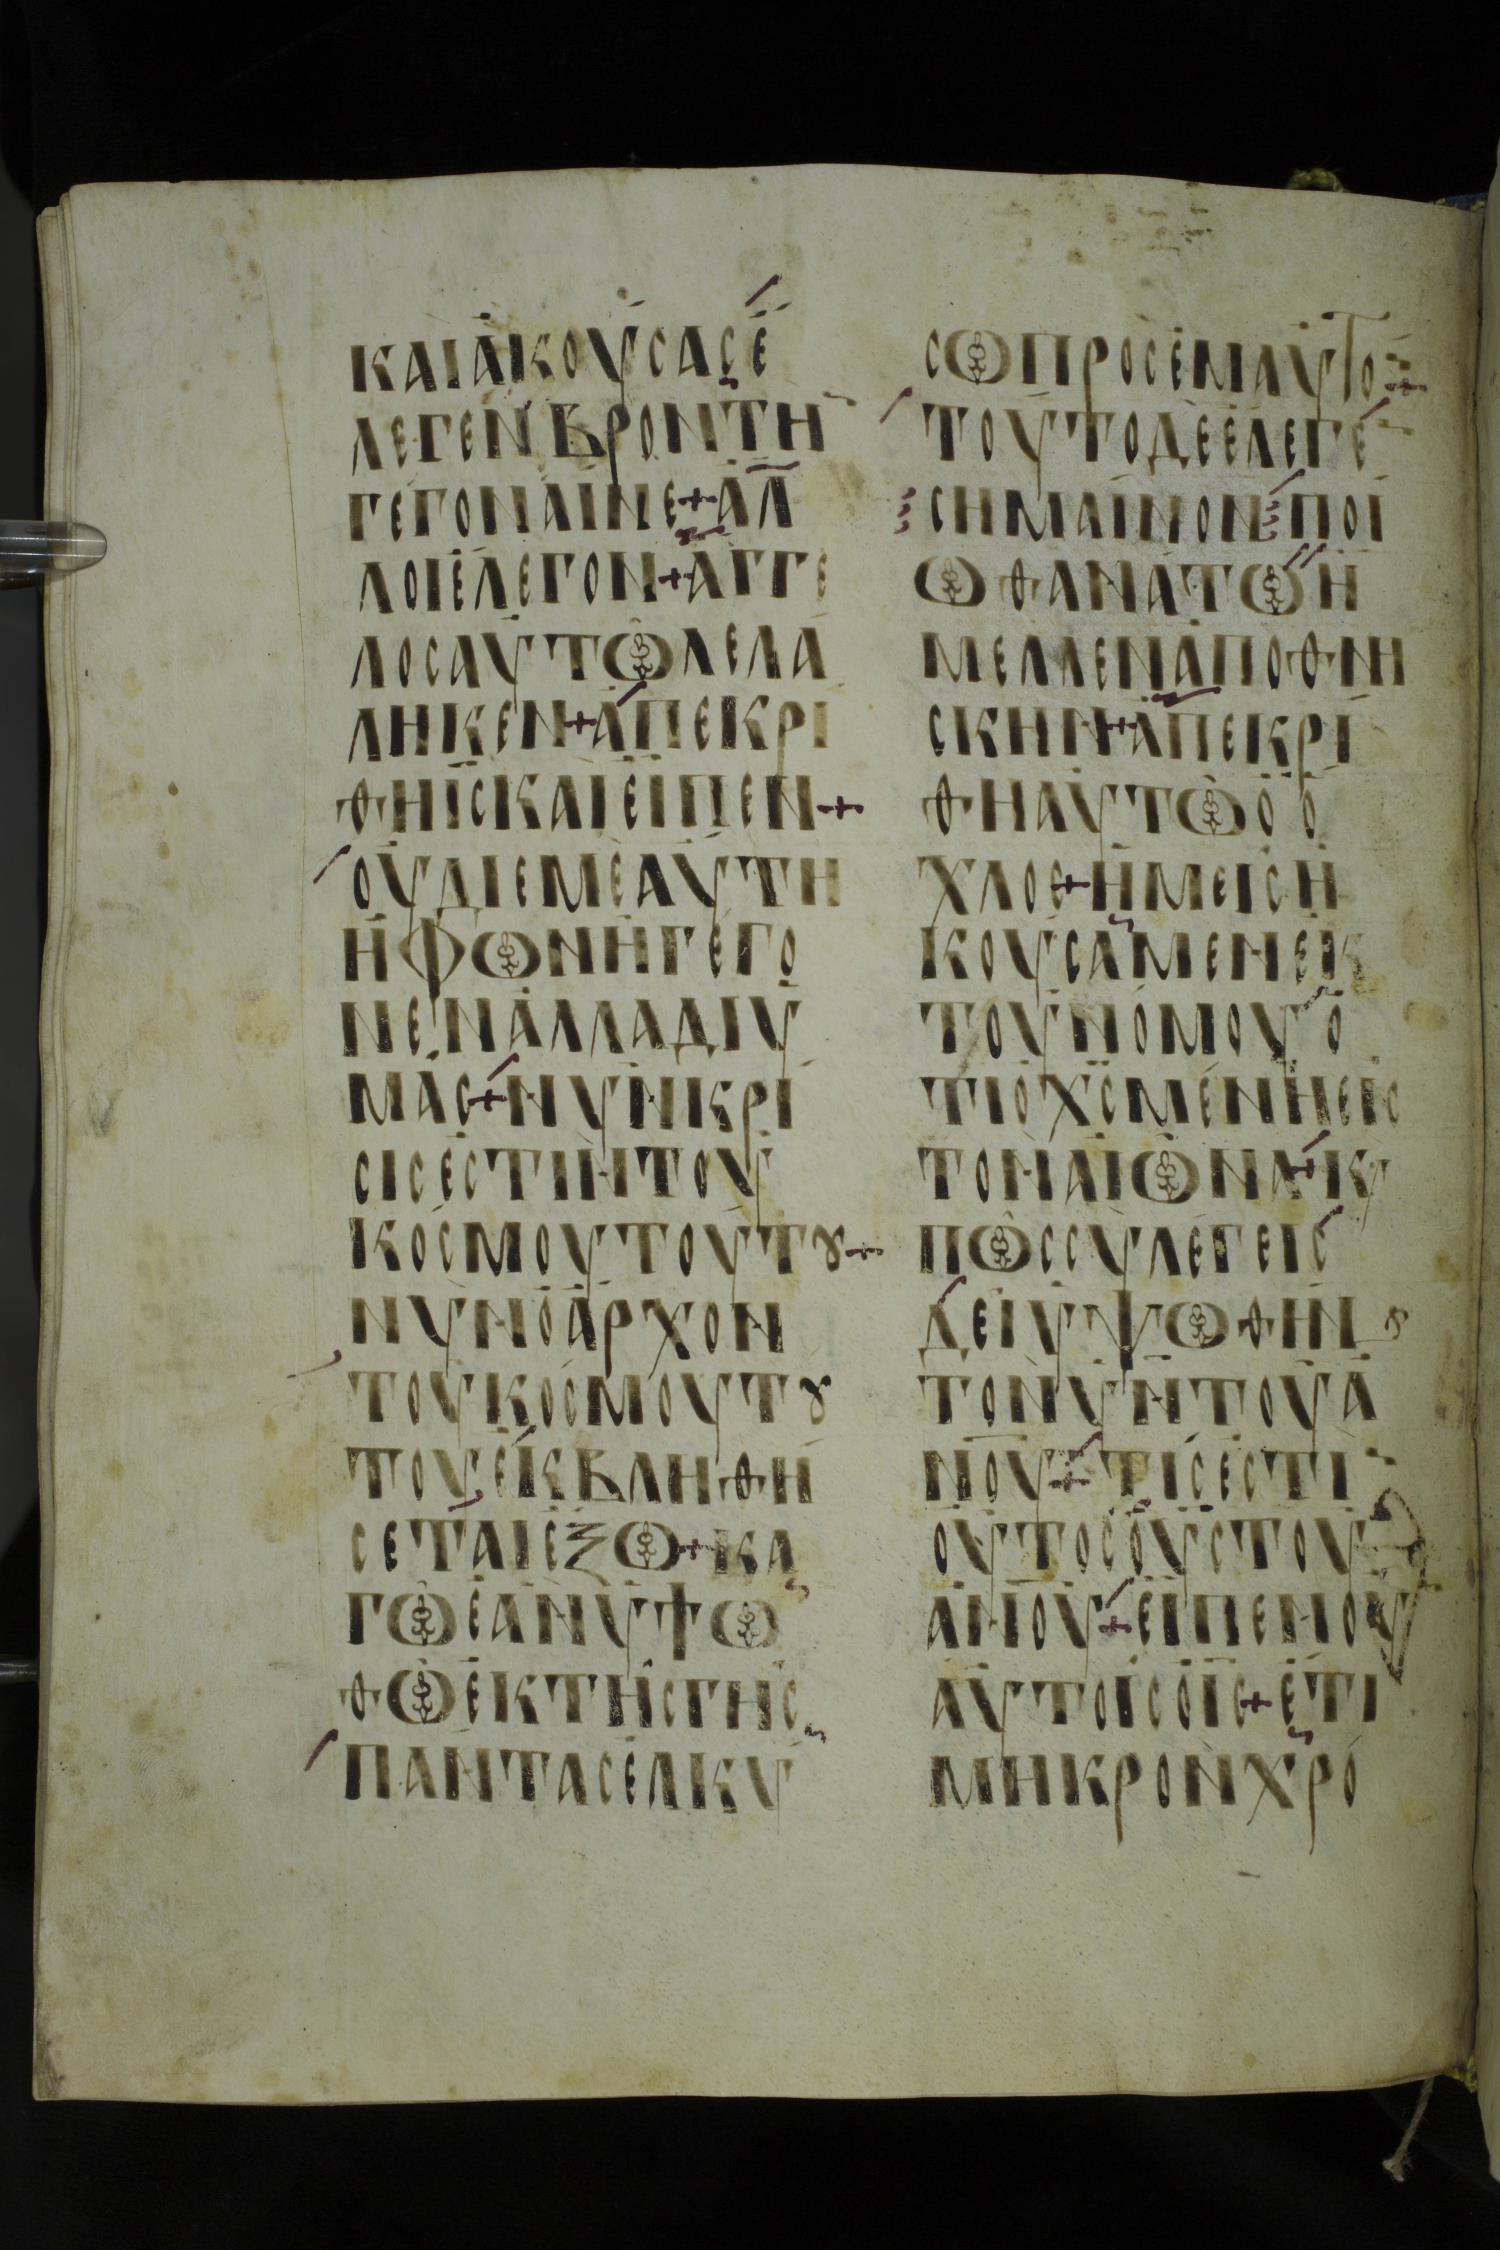 ΚΑΙΑΚΟΥΣΑΣΕ
ΛΕΓΕΝΒΡΟΝΤΗ
ΓΕΓΟΝΑΙΝΕ+ΑΛ
ΛΟΙΕΛΕΓΟΝ+ΑΓΓΕ
ΛΟΣΑΥΤΩΛΕΛΑ
ΛΗΚΕΝ+ΑΠΕΚΡΙ
ΘΗΙΣΚΑΙΕΙΠΕΝ+
ΟΥΔΙΕΜΕΑΥΤΗ
ΗΦΩΝΗΓΕΓΟ
ΝΕΝΑΛΛΑΔΙΥ
ΜΑΣ+ΝΥΝΚΡΙ
ΣΙΣΕΣΤΙΝΤΟΥ
ΚΟΣΜΟΥΤΟΥΤȣ+
ΝΥΝΟΑΡΧΟΝ
ΤΟΥΚΟΣΜΟΥΤȣ
ΤΟΥΕΚΒΛΗΘΗ
ΣΕΤΑΙΕΞΩ+ΚΑ
ΓΩΕΑΝΥΨΩ
ΘΩΕΚΤΗΣΓΗΣ
ΠΑΝΤΑΣΕΛΚΥ
ΣΩΠΡΟΣΕΜΑΥΤΟ+
ΤΟΥΤΟΔΕΕΛΕΓΕ
ΣΗΜΑΙΝΟΝΠΟΙ
ΩΘΑΝΑΤΩΗ
ΜΕΛΛΕΝΑΠΟΘΝΗ
ΣΚΗΝ+ΑΠΕΚΡΙ
ΘΗΑΥΤΩΟΟ
ΧΛΟΣ+ΗΜΕΙΣΗ
ΚΟΥΣΑΜΕΝΕΚ
ΤΟΥΝΟΜΟΥΟ
ΤΙΟΧΣΜΕΝΗΕΙΣ
ΤΟΝΑΙΩΝΑ+Κ
ΠΩΣΣΥΛΕΓΕΙΣ
ΔΕΙΥΨΩΘΗΝ
ΤΟΝΥΝΤΟΥΑ
ΝΟΥ+ΤΙΣΕΣΤΙ
ΟΥΤΟΣΟΥΣΤΟΥ
ΑΝΟΥ+ΕΙΠΕΝΟΥ
ΑΥΤΟΙΣΟΙΣ+ΕΤΙ
ΜΗΚΡΟΝΧΡΟ